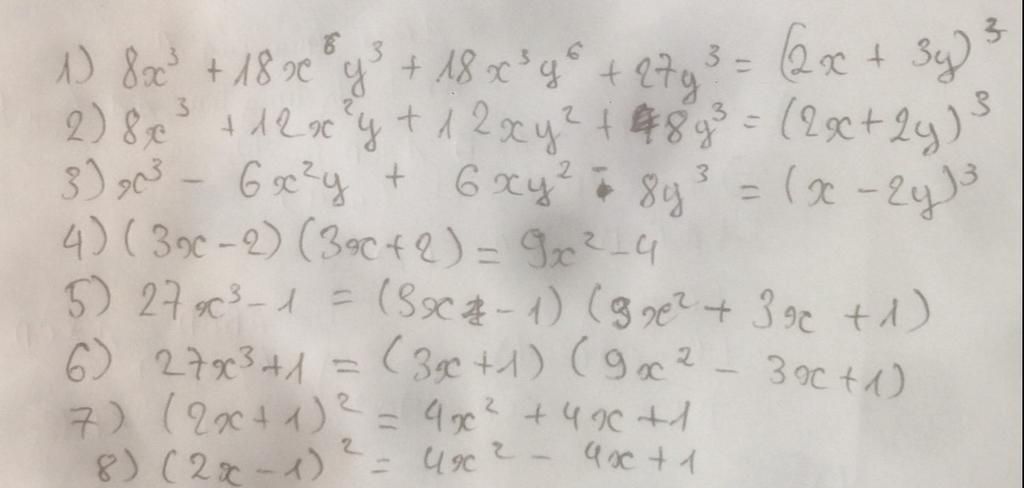 1) 8x³ + 18x⁶y³ + 18x³y⁶ + 27y³ = (2x + 3y)³
2) 8x³ + 12x²y + 12xy² + 8y³ = (2x+2y)³
3) x³ - 6x²y + 6xy² - 8y³ = (x - 2y)³
4) (3x-2)(3x+2) = 9x² - 4
5) 27x³-1 = (3x-1)(9x² + 3x +1)
6) 27x³+1 = (3x+1)(9x² - 3x+1)
7) (2x+1)² = 4x² + 4x +1
8) (2x-1)² = 4x² - 4x+1